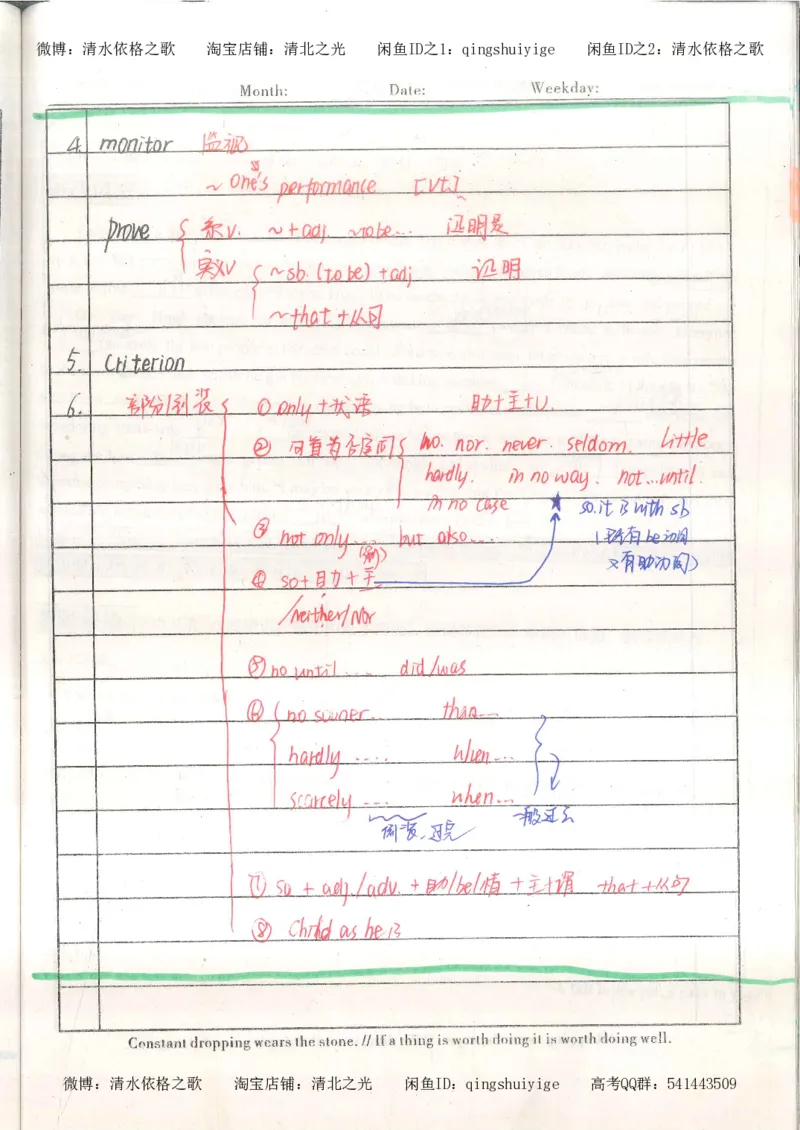 微博：清水依格之歌 淘宝店铺：清北之光 闲鱼ID之1：qingshuiyige 闲鱼ID之2：清水依格之歌
Month: Date: Weekday:
4. monitor 监视
~ one's performance [vt]
prove { 系v. ~+adj. ~to be... 证明是
实义v { ~sb. (to be) + adj 证明
~that +从句
5. Criterion
6. 部分倒装 { ① only +状语 助+主+V.
② 问置首否定词 { no. nor. never. seldom. little
hardly. in no way. not...until.
in no case ★ so it is with sb
③ not only ... but also... (既有be动词
(倒) 又有助动词)
④ so+助+主
/neither/nor
⑤ no until ..... did/was
⑥ { no sooner... than...
hardly ..... when...
scarcely .... when...
倒装.过完 一般过去
⑦ so + adj./adv. + 助/be/情 + 主+谓 that +从句
⑧ Child as he is
Constant dropping wears the stone. // If a thing is worth doing it is worth doing well.
微博：清水依格之歌 淘宝店铺：清北之光 闲鱼ID：qingshuiyige 高考QQ群：541443509